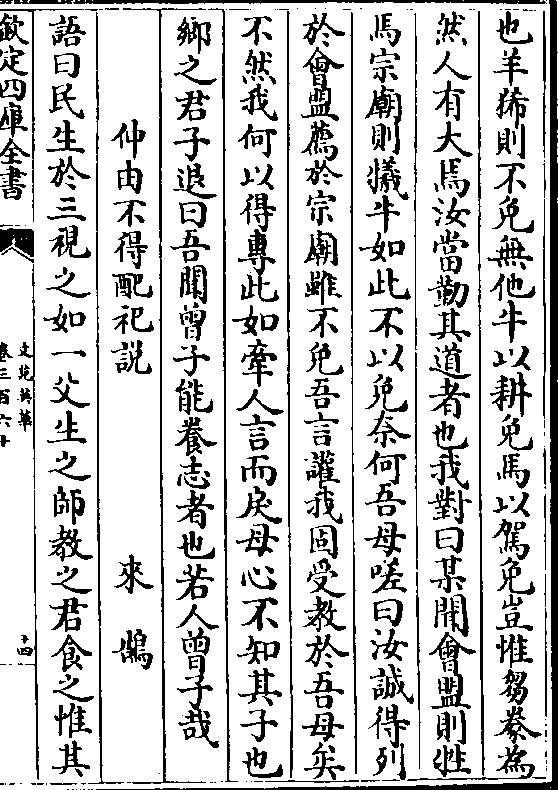 也羊豨則不免無他牛以耕免馬以駕免豈惟芻豢為
然人有大焉汝當勤其道者也我對曰某聞會盟則牲
馬宗廟則犧牛如此不以免奈何吾母嗟曰汝誠得列
於會盟薦於宗廟雖不免吾言讙我固受教於吾母矣
不然我何以得專此如牽人言而戾母心不知其子也
鄉之君子退曰吾聞曾子能養志者也若人曾子哉
仲由不得配祀説 來鵠
語曰民生於三視之如一父生之師教之君食之惟其
欽定四庫全書
文苑英華
卷三百六十
十四